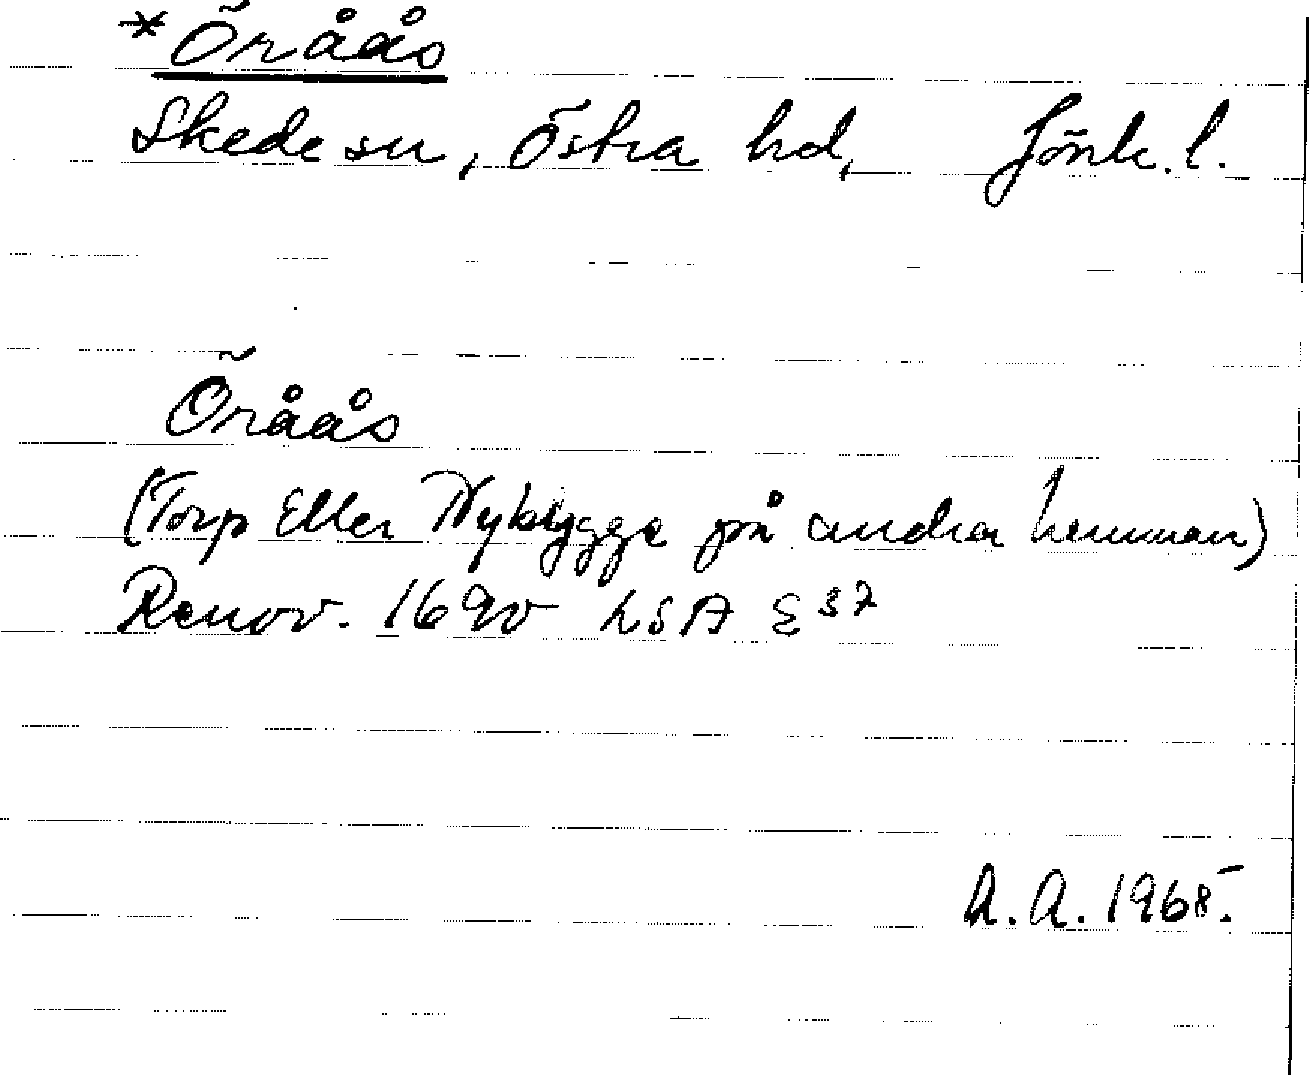 *Öråås
Skede sn, Östra hd, Jönk. l.
Öråås
(Torp Eller Nybygge på andra hemman)
Renov. 1690 LSA E 37
A. A. 1968.